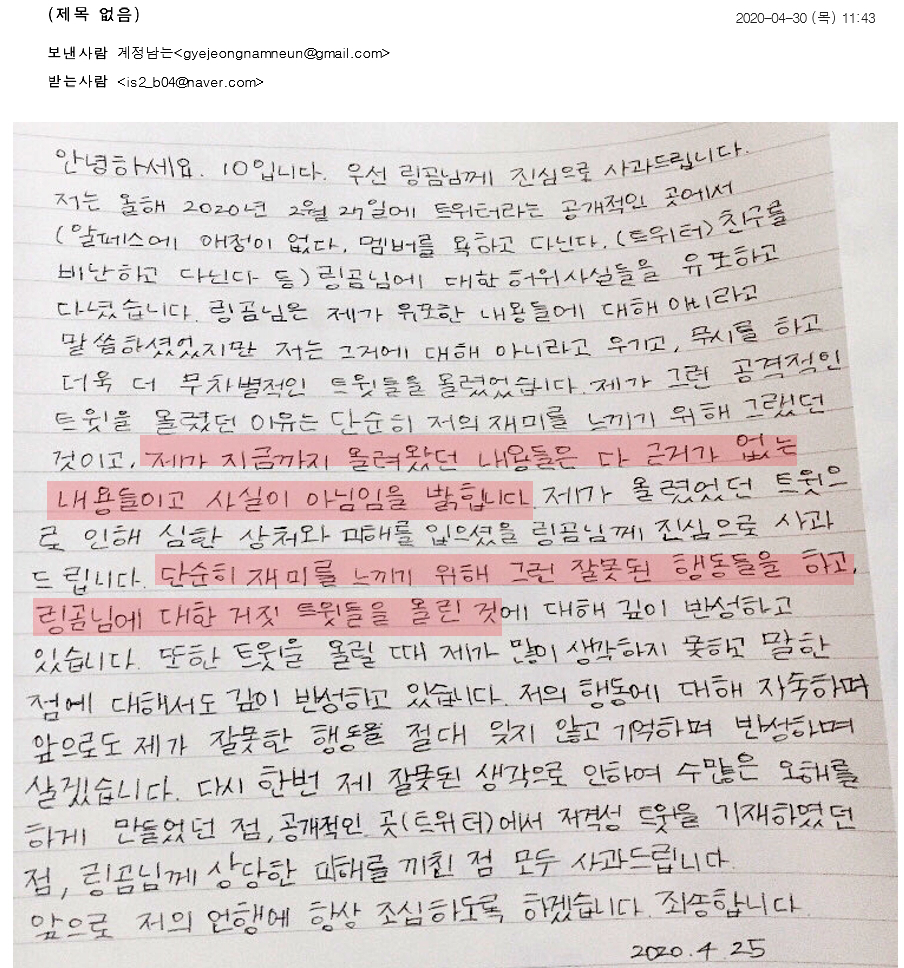 (제목 없음)
2020-04-30 (목) 11:43
보낸사람 계정남는<gyejeongnamneun@gmail.com>
받는사람 <is2_b04@naver.com>
안녕하세요. 10입니다. 우선 링곰님께 진심으로 사과드립니다.
저는 올해 2020년 2월 27일에 트위터라는 공개적인 곳에서
(알페스에 애정이 없다, 멤버를 욕하고 다닌다, (트위터) 친구를
비난하고 다닌다 등) 링곰님에 대한 허위사실들을 유포하고
다녔습니다. 링곰님은 제가 유포한 내용들에 대해 아니라고
말씀하셨었지만 저는 그거에 대해 아니라고 우기고, 무시를 하고
더욱 더 무차별적인 트윗들을 올렸었습니다. 제가 그런 공격적인
트윗을 올렸던 이유는 단순히 저의 재미를 느끼기 위해 그랬던
것이고, 제가 지금까지 올려왔던 내용들은 다 근거가 없는
내용들이고 사실이 아님임을 밝힙니다. 제가 올렸었던 트윗으
로 인해 심한 상처와 피해를 입으셨을 링곰님께 진심으로 사과
드립니다. 단순히 재미를 느끼기 위해 그런 잘못된 행동들을 하고,
링곰님에 대한 거짓 트윗들을 올린 것에 대해 깊이 반성하고
있습니다. 또한 트윗을 올릴 때 제가 많이 생각하지 못하고 말한
점에 대해서도 깊이 반성하고 있습니다. 저의 행동에 대해 자숙하며
앞으로도 제가 잘못한 행동을 절대 잊지 않고 기억하며 반성하며
살겠습니다. 다시 한번 제 잘못된 생각으로 인하여 수많은 오해를
하게 만들었던 점, 공개적인 곳(트위터)에서 저격성 트윗을 기재하였던
점, 링곰님께 상당한 피해를 끼친 점 모두 사과드립니다.
앞으로 저의 언행에 항상 조심하도록 하겠습니다. 죄송합니다.
2020.4.25